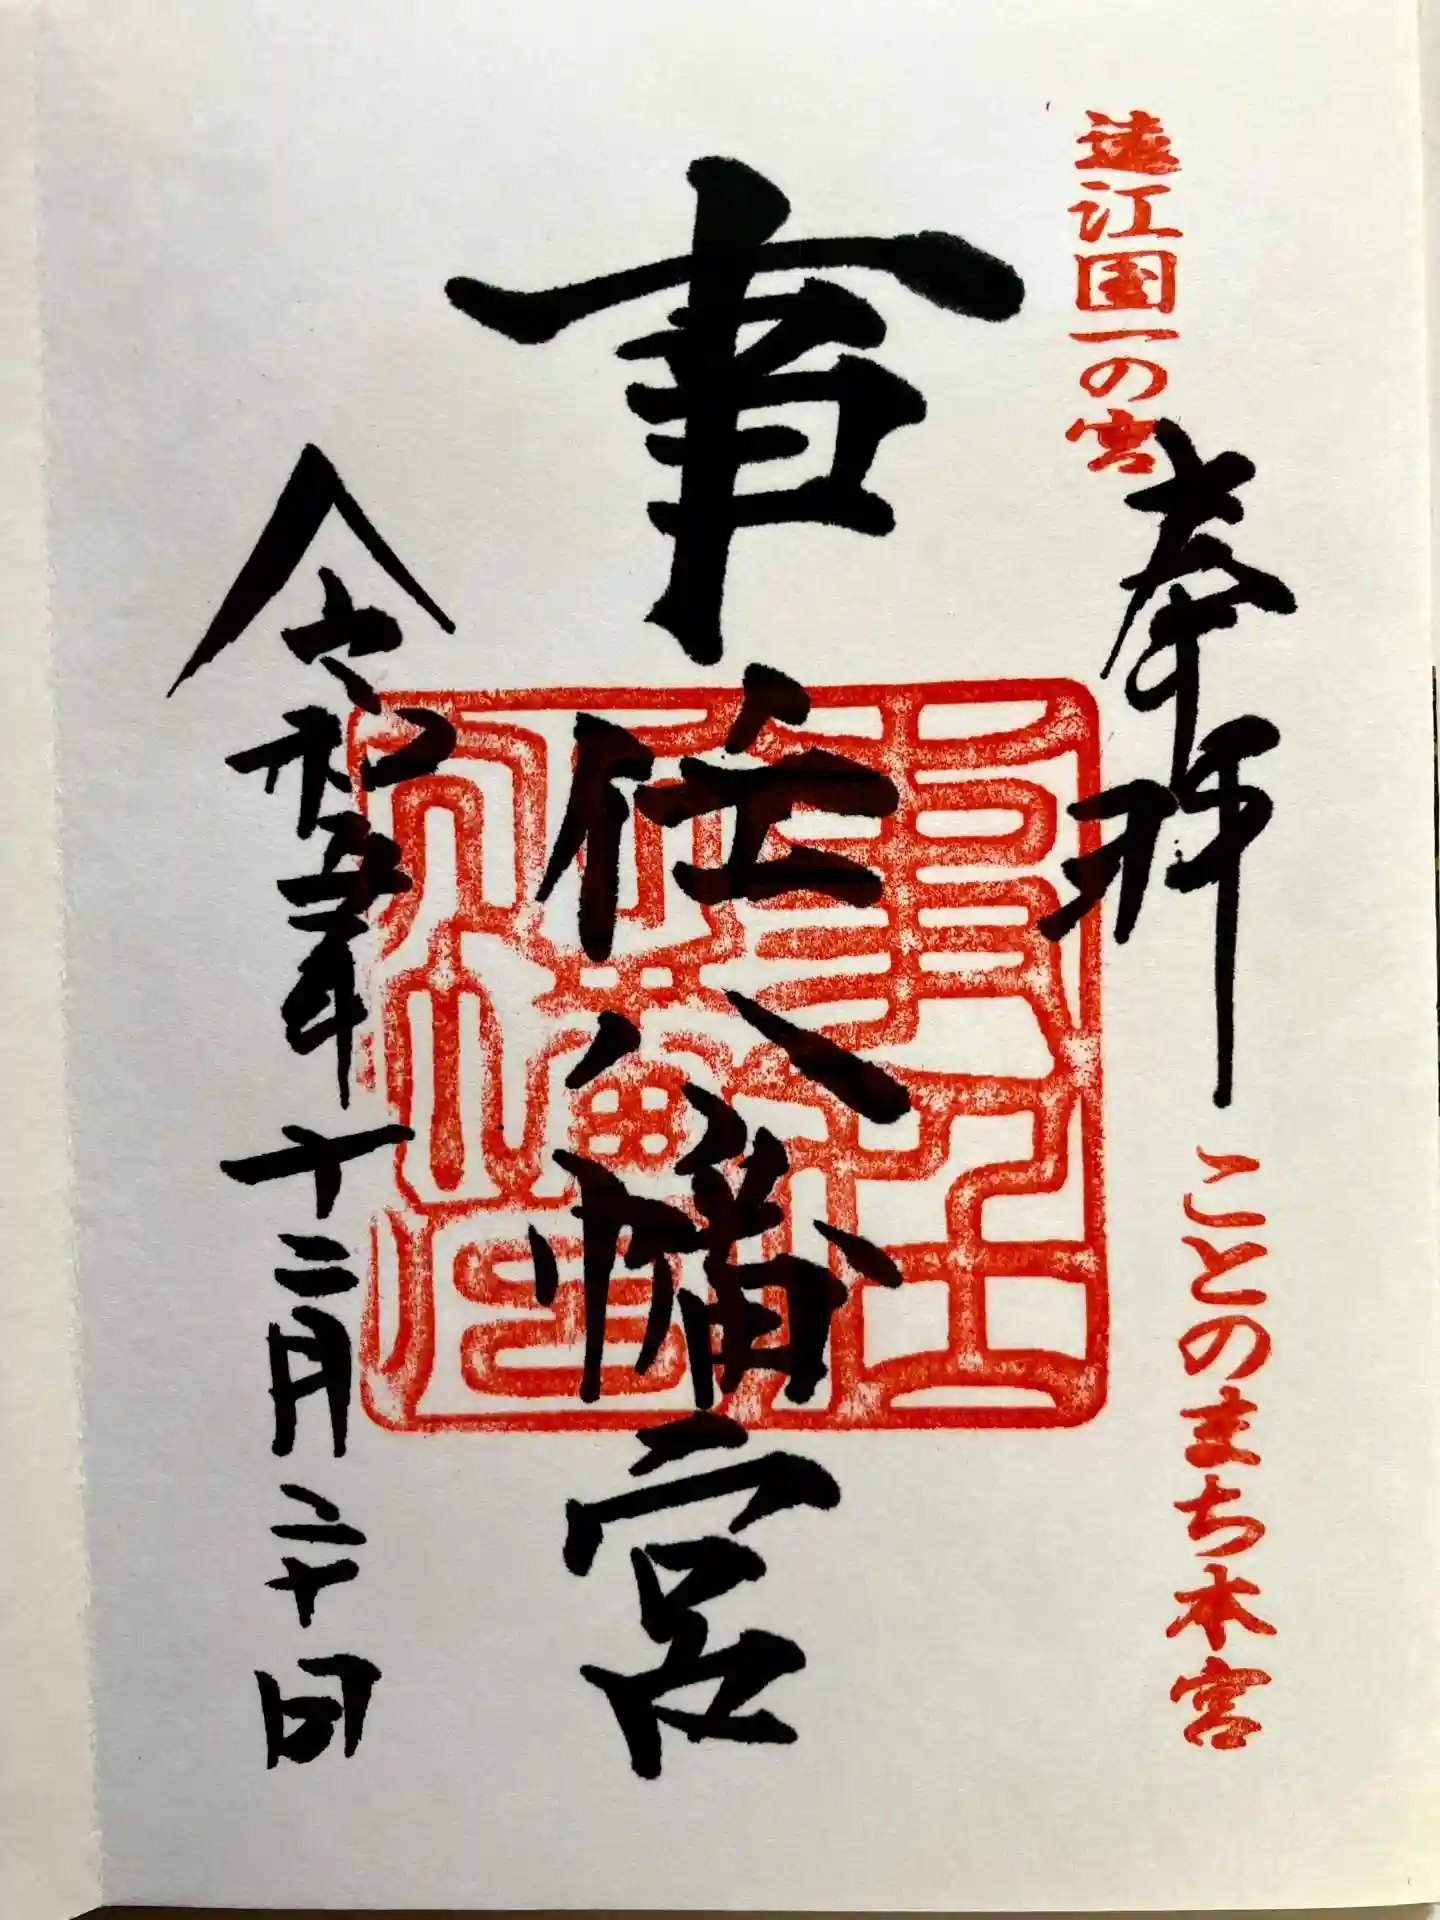 遠江国一の宮
奉拝
ことのまち本宮
事任八幡宮
令和五年十二月二十日